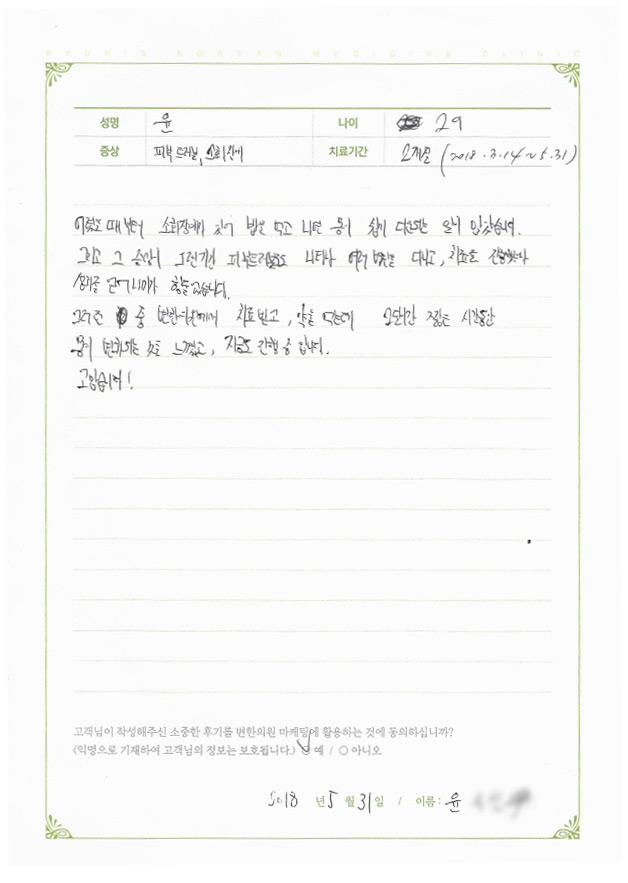 BYUN'S KOREAN MEDICINE CLINIC
성명 윤 나이 29
증상 피부 트러블, 소화장애 치료기간 2개월 (2018. 3. 14 ~ 5. 31)
어렸을 때부터 소화장애가 있어 밥을 먹고 나면 몸이 쉽게
그리고 그 증상이 피부트러블로 나타나 여러 병원을 다니고, 치료를 진행했으나
효과를
그러던 중 변한의원에서 치료 받고, 약을 먹는데 2달간 짧은 시간동안
몸이 변화되는 것을 느꼈고, 지금도 진행 중 입니다.
고맙습니다!
고객님이 작성해주신 소중한 후기를 변한의원 마케팅에 활용하는 것에 동의하십니까?
(익명으로 기재하여 고객님의 정보는 보호됩니다.) ○ 예 / ○ 아니오
2018 년 5 월 31 일 / 이름 : 윤